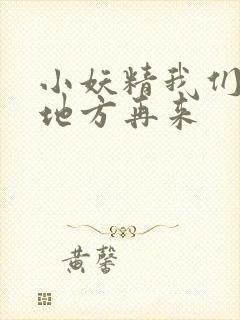 小妖精我们
地方再来
黄馨